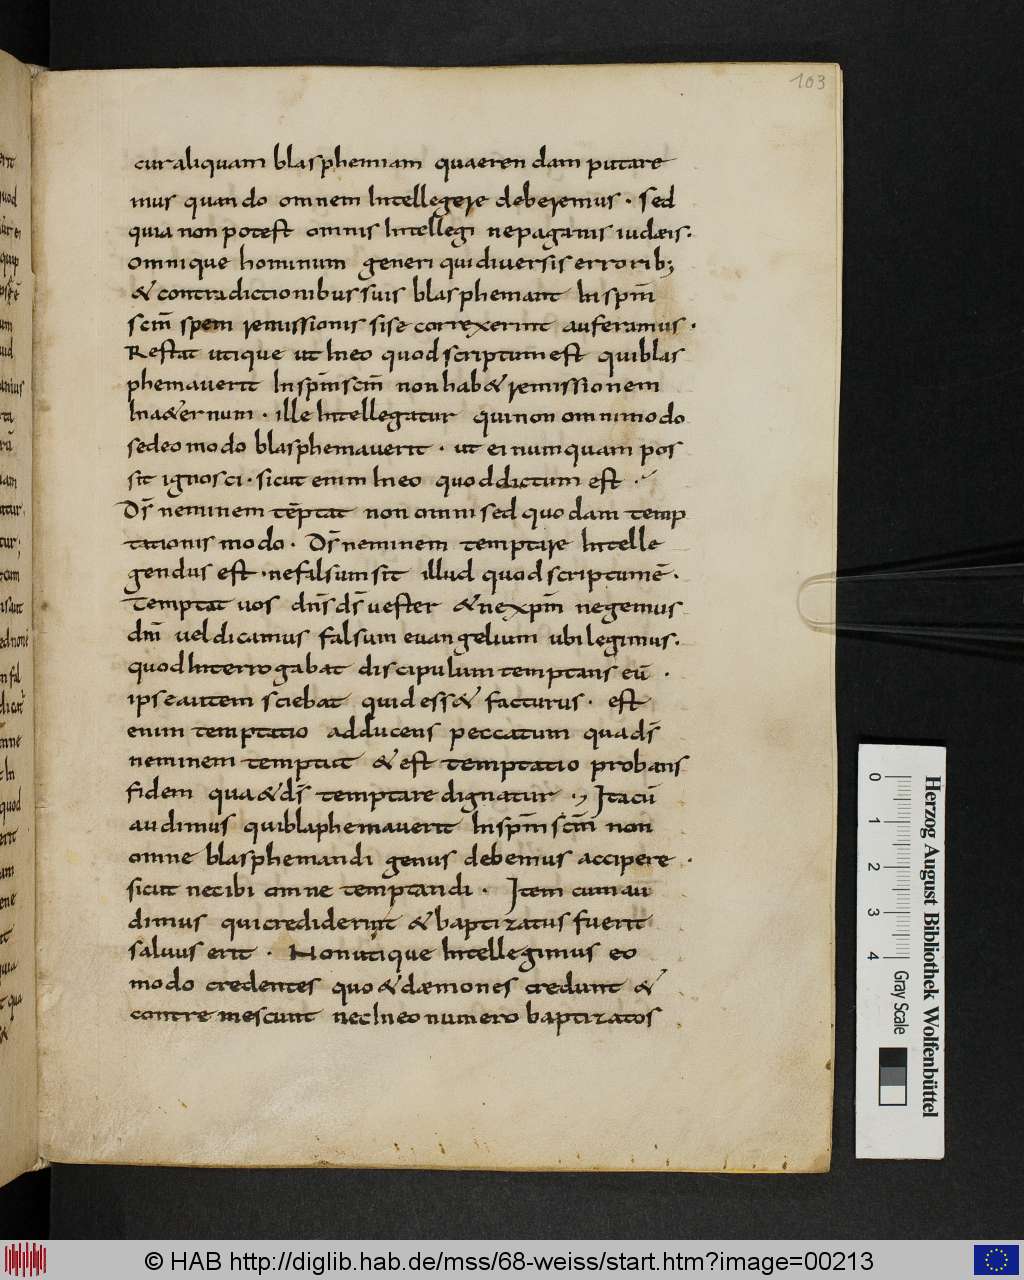 103
cur aliquam blasphemiam quaerendam putare
mus quando omnem intellegere deberemus · sed
quia non potest omnis intellegi ne paganis iudaeis ·
omnique hominum generi qui diversis errorib;
& contradictionibus suis blasphemant in sp̄m
sc̄m spem remissionis si se correxerint auferamus ·
Restat utique ut in eo quod scriptum est qui blas
phemaverit in sp̄m sc̄m non hab& remissionem
in a&ernum · ille intellegatur qui non omni modo
sed eo modo blasphemaverit · ut ei numquam pos
sit ignosci · sicut enim in eo quod dictum est ·
Ds̄ neminem tēptat non omni sed quodam temp
tationis modo · Ds̄ neminem temptare intelle
gendus est · ne falsum sit illud quod scriptum ē ·
Temptat vos dn̄s ds̄ vester & ne xp̄m negemus
dm̄ vel dicamus falsum euangelium ubi legimus ·
quod interrogabat discipulum temptans eū ·
ipse autem sciebat quid ess& facturus · est
enim temptatio adducens peccatum qua ds̄
neminem temptat & est temptatio probans
fidem qua & ds̄ temptare dignatur · Ita cū
audimus qui blaphemaverit in sp̄m sc̄m non
omne blasphemandi genus debemus accipere ·
sicut nec ibi omne temptandi · Item cum au
dimus qui crediderint & baptizatus fuerit
salvus erit · Non utique intellegimus eo
modo credentes quo & daemones credunt &
contremescunt nec in eo numero baptizatos
0 1 2 3 4
Gray Scale
Herzog August Bibliothek Wolfenbüttel
© HAB http://diglib.hab.de/mss/68-weiss/start.htm?image=00213